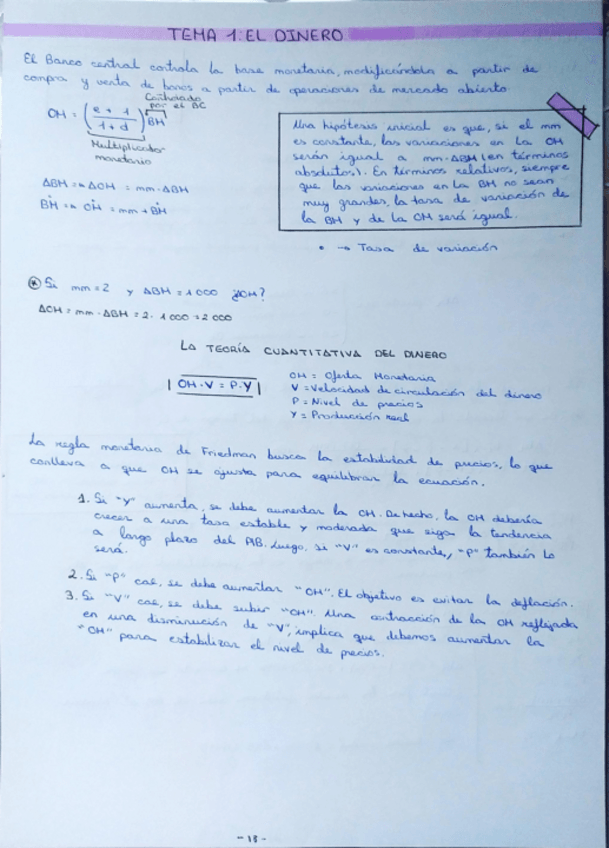 TEMA 1: EL DINERO
El Banco central controla la base monetaria, modificándola a partir de
compra y venta de bonos a partir de operaciones de mercado abierto.
Controlado
por el BC
OM = (e + 1 / 1 + d) BM
Multiplicador
monetario
ΔBM → ΔOM = mm · ΔBM
ḂM → ȮM = mm + ḂM
Una hipótesis inicial es que, si el mm
es constante, las variaciones en la OM
serán igual a mm · ΔBM (en términos
absolutos). En términos relativos, siempre
que las variaciones en la BM no sean
muy grandes, la tasa de variación de
la BM y de la OM será igual.
• → Tasa de variación
* Si mm = 2 y ΔBM = 1000 ¿OM?
ΔOM = mm · ΔBM = 2 · 1000 = 2000
LA TEORÍA CUANTITATIVA DEL DINERO
| OM · V = P · Y |
OM = Oferta Monetaria
V = Velocidad de circulación del dinero
P = Nivel de precios
Y = Producción real
La regla monetaria de Friedman busca la estabilidad de precios, lo que
conlleva a que OM se ajusta para equilibrar la ecuación.
1. Si "Y" aumenta, se debe aumentar la OM. De hecho, la OM debería
crecer a una tasa estable y moderada que siga la tendencia
a largo plazo del PIB. Luego, si "V" es constante, "P" también lo
será.
2. Si "P" cae, se debe aumentar "OM". El objetivo es evitar la deflación.
3. Si "V" cae, se debe subir "OM". Una contracción de la OM reflejada
en una disminución de "V", implica que debemos aumentar la
"OM" para estabilizar el nivel de precios.
- 13 -